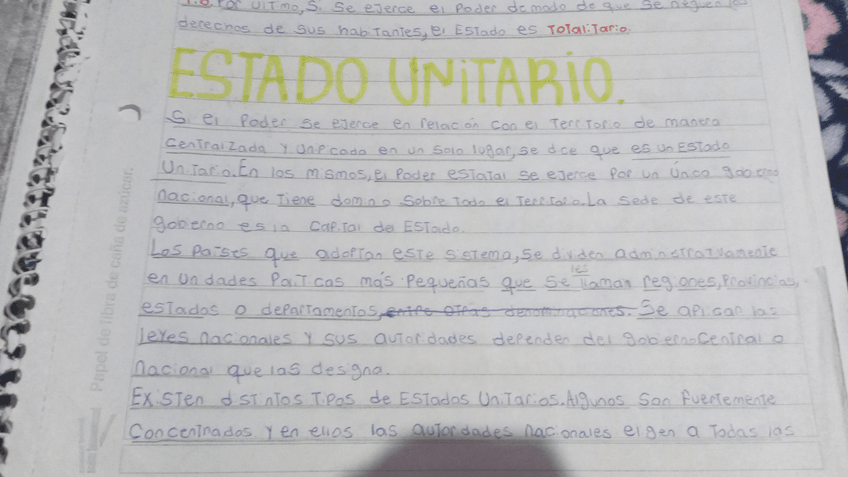 1.8 Por último, si se ejerce el Poder de modo de que se nieguen los
derechos de sus habitantes, el Estado es Totalitario.
ESTADO UNITARIO.
Si el Poder se ejerce en relación con el Territorio de manera
centralizada y unificada en un solo lugar, se dice que es un Estado
Unitario. En los mismos, el Poder estatal se ejerce por un único gobierno
nacional, que tiene dominio sobre todo el territorio. La sede de este
gobierno es la capital del Estado.
Los Países que adoptan este sistema, se dividen administrativamente
en unidades Políticas más Pequeñas que se les llaman regiones, Provincias,
estados o departamentos, entre otras denominaciones. Se aplican las
leyes nacionales y sus autoridades dependen del gobierno Central o
nacional que las designa.
Existen distintos Tipos de Estados Unitarios. Algunos son fuertemente
concentrados y en ellos las autoridades nacionales eligen a todas las
Papel de fibra de caña de azúcar.